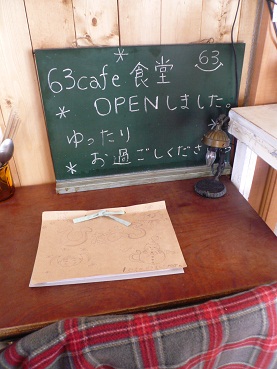 63
63cafe 食堂
OPENしました。
ゆったり
お過ごしください